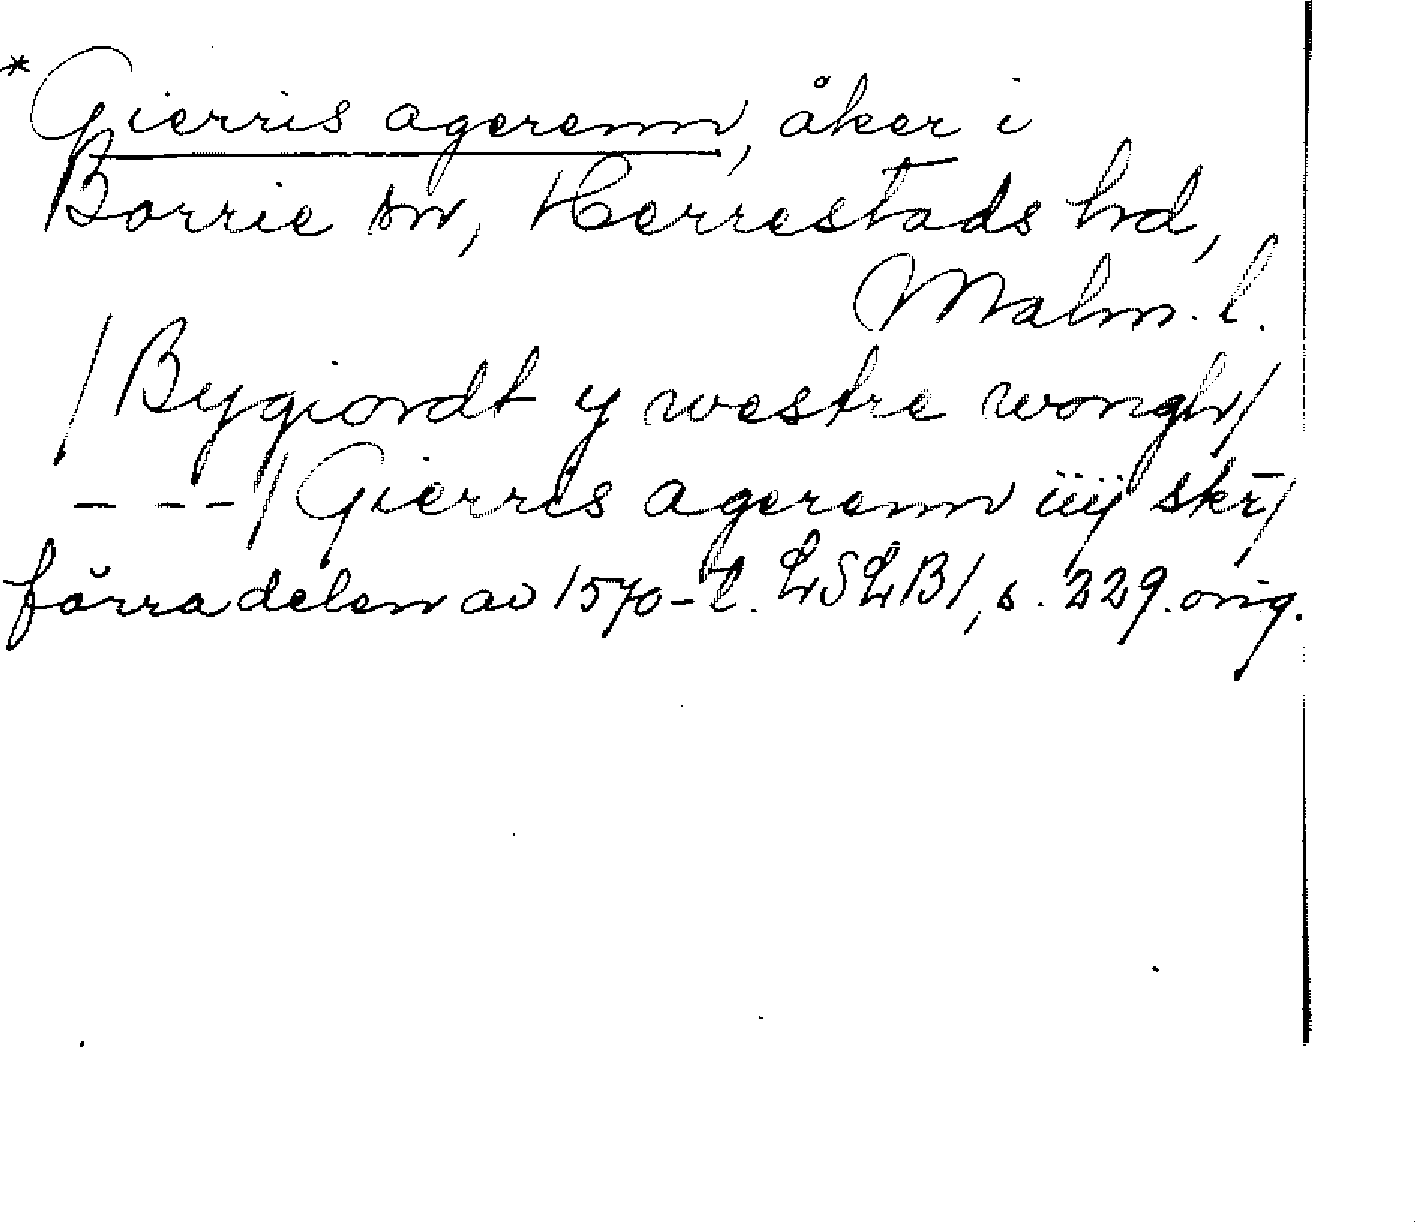 *Gierris agerenn, åker i
Borrie sn, Herrestads hd,
Malm. l.
/Bygiordt y westre wongh/
- - -/Gierris agerenn iiij skr̄/
förra delen av 1570-t. LSLB1, s. 229. orig.